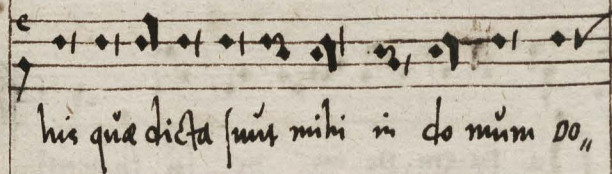 his quæ dicta ſunt mihi in do mum Do„